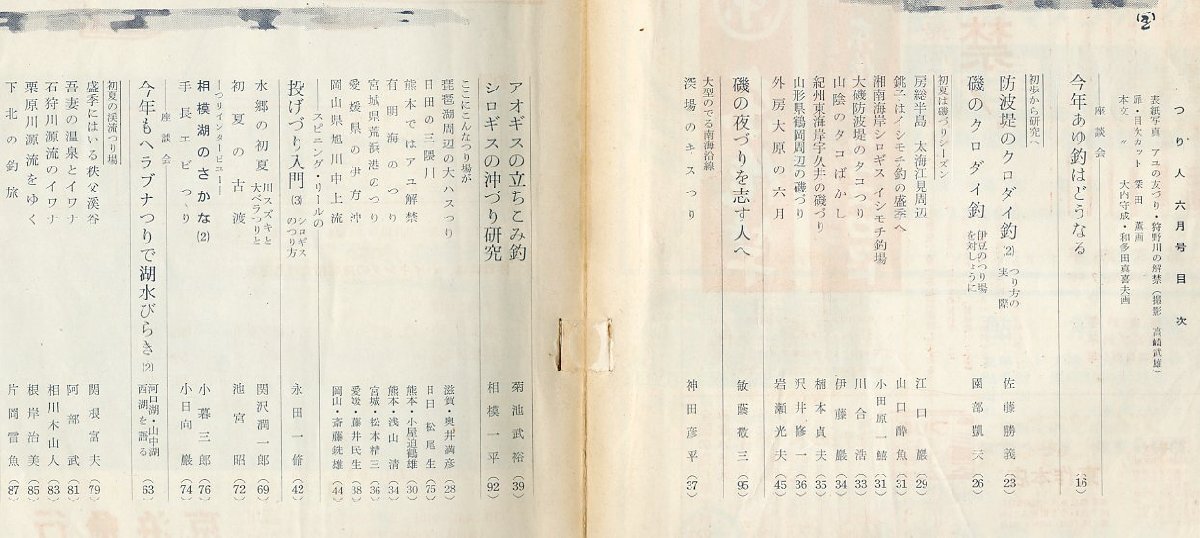 (2)
つり人六月号目次
表紙写真 アユの友づり・狩野川の解禁(撮影 高崎武雄)
扉・目次カット 栗田 薫画
本文 〃 大内守成・和多田真喜夫画
座談会
今年あゆ釣はどうなる (16)
初歩から研究へ
防波堤のクロダイ釣(2) つり方の実際 佐藤勝義 (23)
磯のクロダイ釣 伊豆のつり場を対しょうに 園部凱夫 (26)
初夏は磯づりシーズン
房総半島 太海江見周辺 江口巌 (29)
銚子はイシモチ釣の盛季へ 山口酔魚 (31)
湘南海岸シロギス イシモチ釣場 小田原一鱚 (31)
大磯防波堤のタコつり 川合浩 (33)
山陰のタコばかし 伊藤巌 (34)
紀州東海岸宇久井の磯づり 楠本貞夫 (35)
山形県鶴岡周辺の磯づり 沢井修一 (36)
外房大原の六月 岩瀬光夫 (45)
磯の夜づりを志す人へ 敏蔭敬三 (95)
大型のでる南海沿線
深場のキスつり 神田彦平 (37)
アオギスの立ちこみ釣 菊池武裕 (39)
シロギスの沖づり研究 相模一平 (92)
ここにこんなつり場が
琵琶湖周辺の大ハスつり 滋賀・奥井満彦 (28)
日田の三隈川 日田 松尾生 (75)
熊本ではアユ解禁 熊本・小屋迫鶴哉 (30)
有明海のつり 熊本・浅山清 (34)
宮城県荒浜港のつり 宮城・松本精三 (36)
愛媛県の伊方沖 愛媛・藤井民生 (38)
岡山県旭川中上流 岡山・斎藤銑雄 (44)
スピニング・リールの
投げづり入門(3) シロギスのつり方 永田一脩 (42)
水郷の初夏 川スズキと大ベラつりと 関沢潤一郎 (69)
初夏の古渡 池宮昭 (72)
―つりインタービュー―
相模湖のさかな(2) 小暮三郎 (76)
手長エビつり 小日向巌 (74)
座談会
今年もヘラブナつりで湖水びらき(2) 河口湖・山中湖 西湖を語る (63)
初夏の渓流づり場
盛季にはいる秩父渓谷 関根富夫 (79)
吾妻の温泉とイワナ 阿部武 (81)
石狩川源流のイワナ 相川木山人 (83)
栗原川源流をゆく 根岸治美 (85)
下北の釣旅 片岡雷魚 (87)